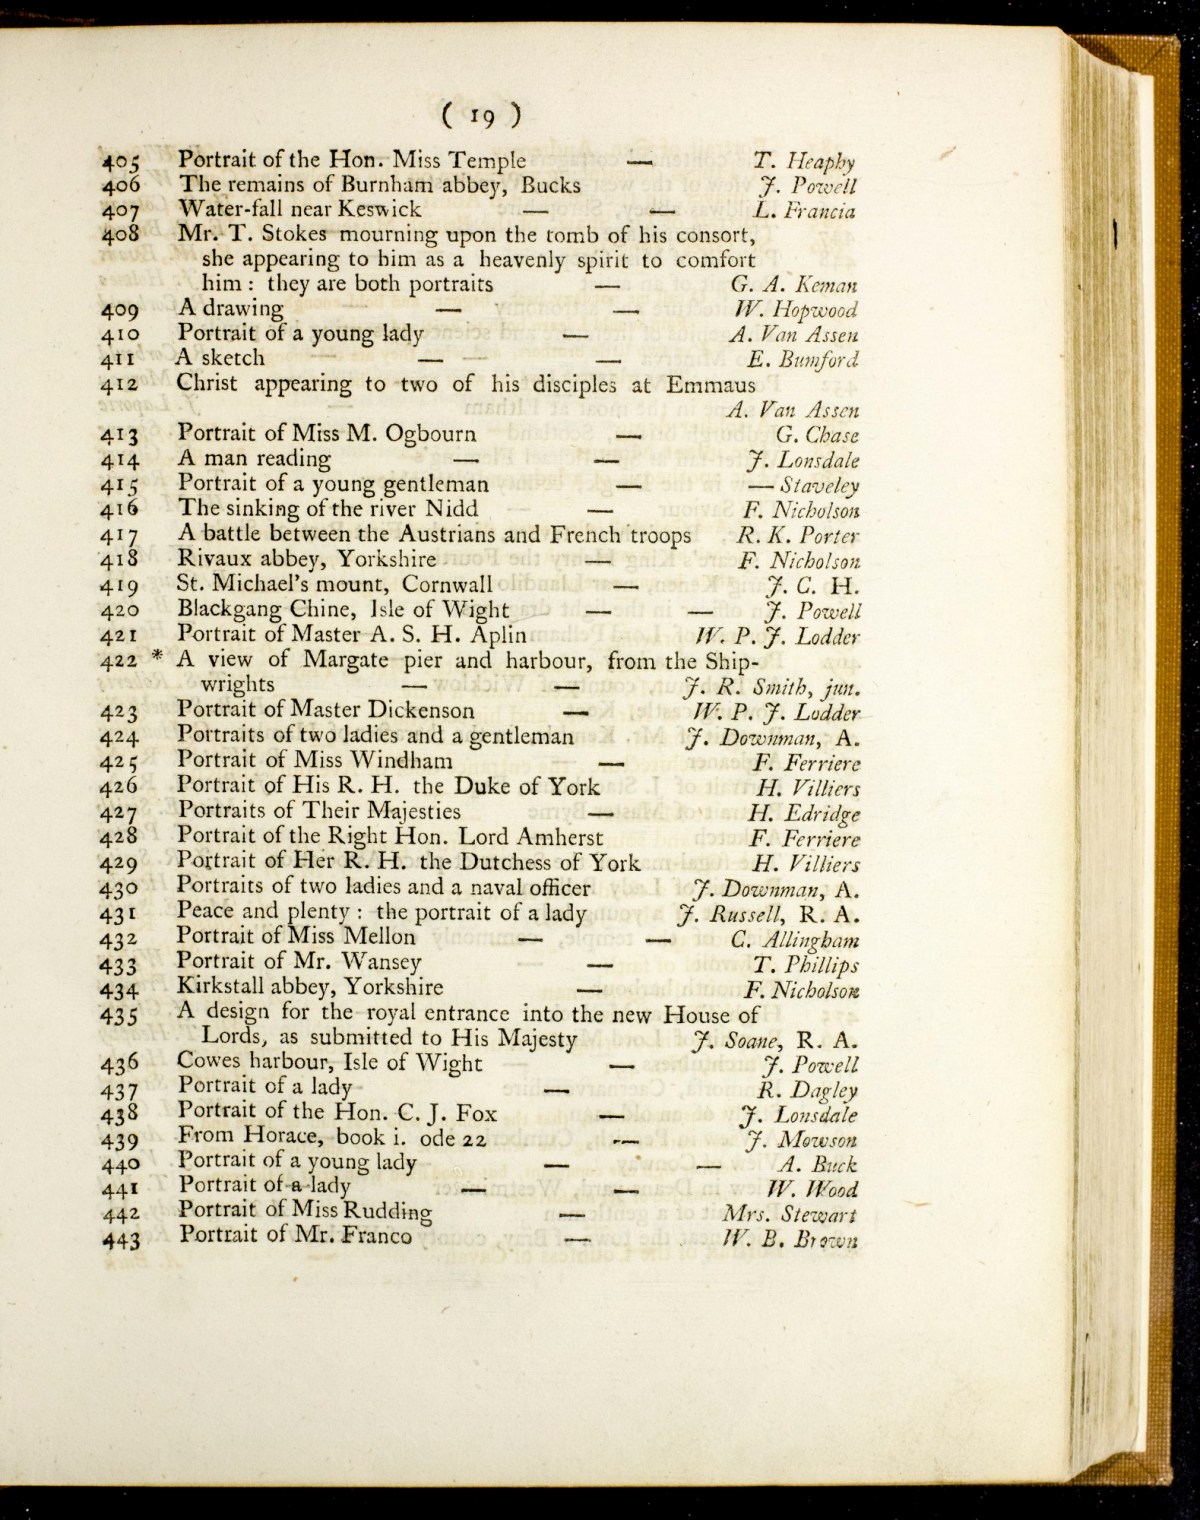 ( 19 )
405 Portrait of the Hon. Miss Temple — T. Heaphy
406 The remains of Burnham abbey, Bucks J. Powell
407 Water-fall near Keswick — — L. Francia
408 Mr. T. Stokes mourning upon the tomb of his consort,
she appearing to him as a heavenly spirit to comfort
him : they are both portraits — G. A. Keman
409 A drawing — — W. Hopwood
410 Portrait of a young lady — A. Van Assen
411 A sketch — — E. Bumford
412 Christ appearing to two of his disciples at Emmaus
A. Van Assen
413 Portrait of Miss M. Ogbourn — G. Chase
414 A man reading — — J. Lonsdale
415 Portrait of a young gentleman — — Staveley
416 The sinking of the river Nidd — F. Nicholson
417 A battle between the Austrians and French troops R. K. Porter
418 Rivaux abbey, Yorkshire — F. Nicholson
419 St. Michael's mount, Cornwall — J. C. H.
420 Blackgang Chine, Isle of Wight — — J. Powell
421 Portrait of Master A. S. H. Aplin W. P. J. Lodder
422 * A view of Margate pier and harbour, from the Ship-
wrights — — J. R. Smith, jun.
423 Portrait of Master Dickenson — W. P. J. Lodder
424 Portraits of two ladies and a gentleman J. Downman, A.
425 Portrait of Miss Windham — F. Ferriere
426 Portrait of His R. H. the Duke of York H. Villiers
427 Portraits of Their Majesties — H. Edridge
428 Portrait of the Right Hon. Lord Amherst F. Ferriere
429 Portrait of Her R. H. the Dutchess of York H. Villiers
430 Portraits of two ladies and a naval officer J. Downman, A.
431 Peace and plenty : the portrait of a lady J. Russell, R. A.
432 Portrait of Miss Mellon — — C. Allingham
433 Portrait of Mr. Wansey — T. Phillips
434 Kirkstall abbey, Yorkshire — F. Nicholson
435 A design for the royal entrance into the new House of
Lords, as submitted to His Majesty J. Soane, R. A.
436 Cowes harbour, Isle of Wight — J. Powell
437 Portrait of a lady — R. Dagley
438 Portrait of the Hon. C. J. Fox — J. Lonsdale
439 From Horace, book i. ode 22 — J. Mowson
440 Portrait of a young lady — — A. Buck
441 Portrait of a lady — — W. Wood
442 Portrait of Miss Rudding — Mrs. Stewart
443 Portrait of Mr. Franco — W. B. Brown